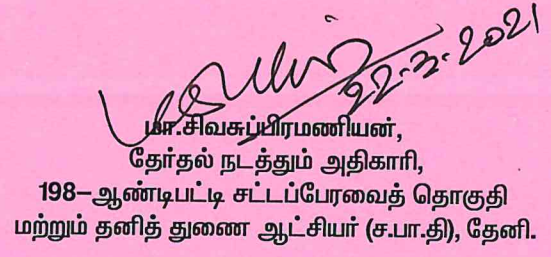 22-3-2021
மா.சிவசுப்பிரமணியன்,
தேர்தல் நடத்தும் அதிகாரி,
198–ஆண்டிபட்டி சட்டப்பேரவைத் தொகுதி
மற்றும் தனித் துணை ஆட்சியர் (ச.பா.தி), தேனி.